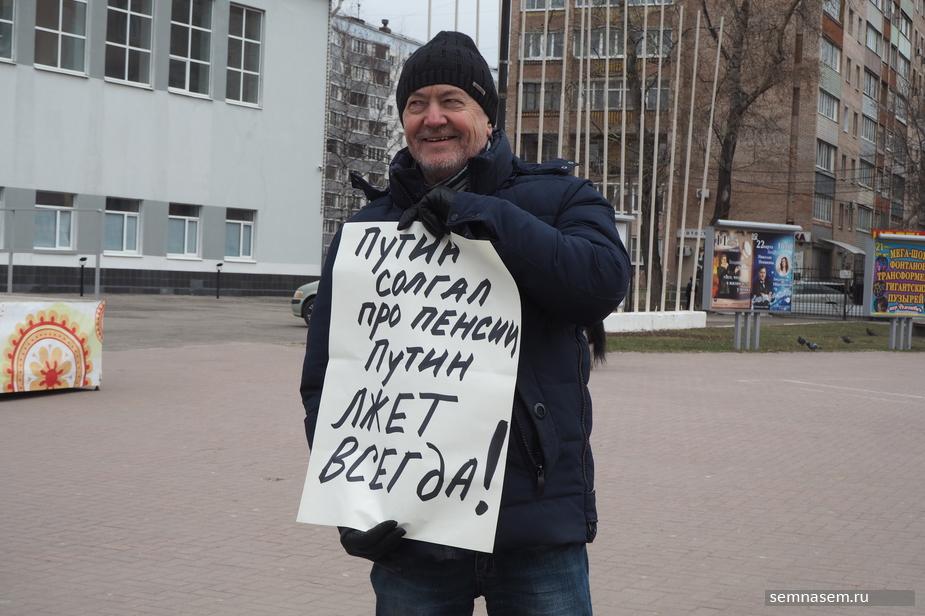 Путин
солгал
про пенсии
Путин
лжет
всегда!
22 марта
21
МЕГА-ШОУ
ФОНТАНОВ
ТРАНСФОРМЕРЫ
ГИГАНТСКИЕ
ПУЗЫРЕЙ
semnasem.ru